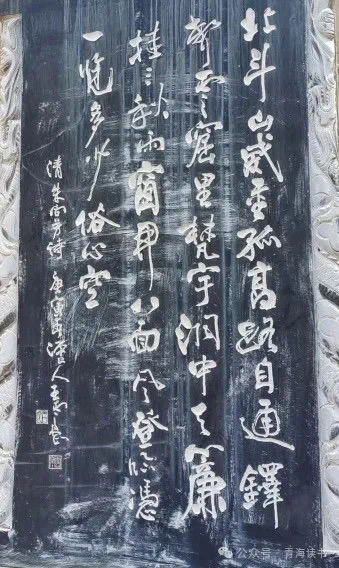 北斗山垂孤高路自通鐸
云窟里梵宇洞中天簾
挂三秋雨窗開八面风登临憑
一览多少俗心空
清朱向芳诗 庚寅湟人
公众号 · 青海读书